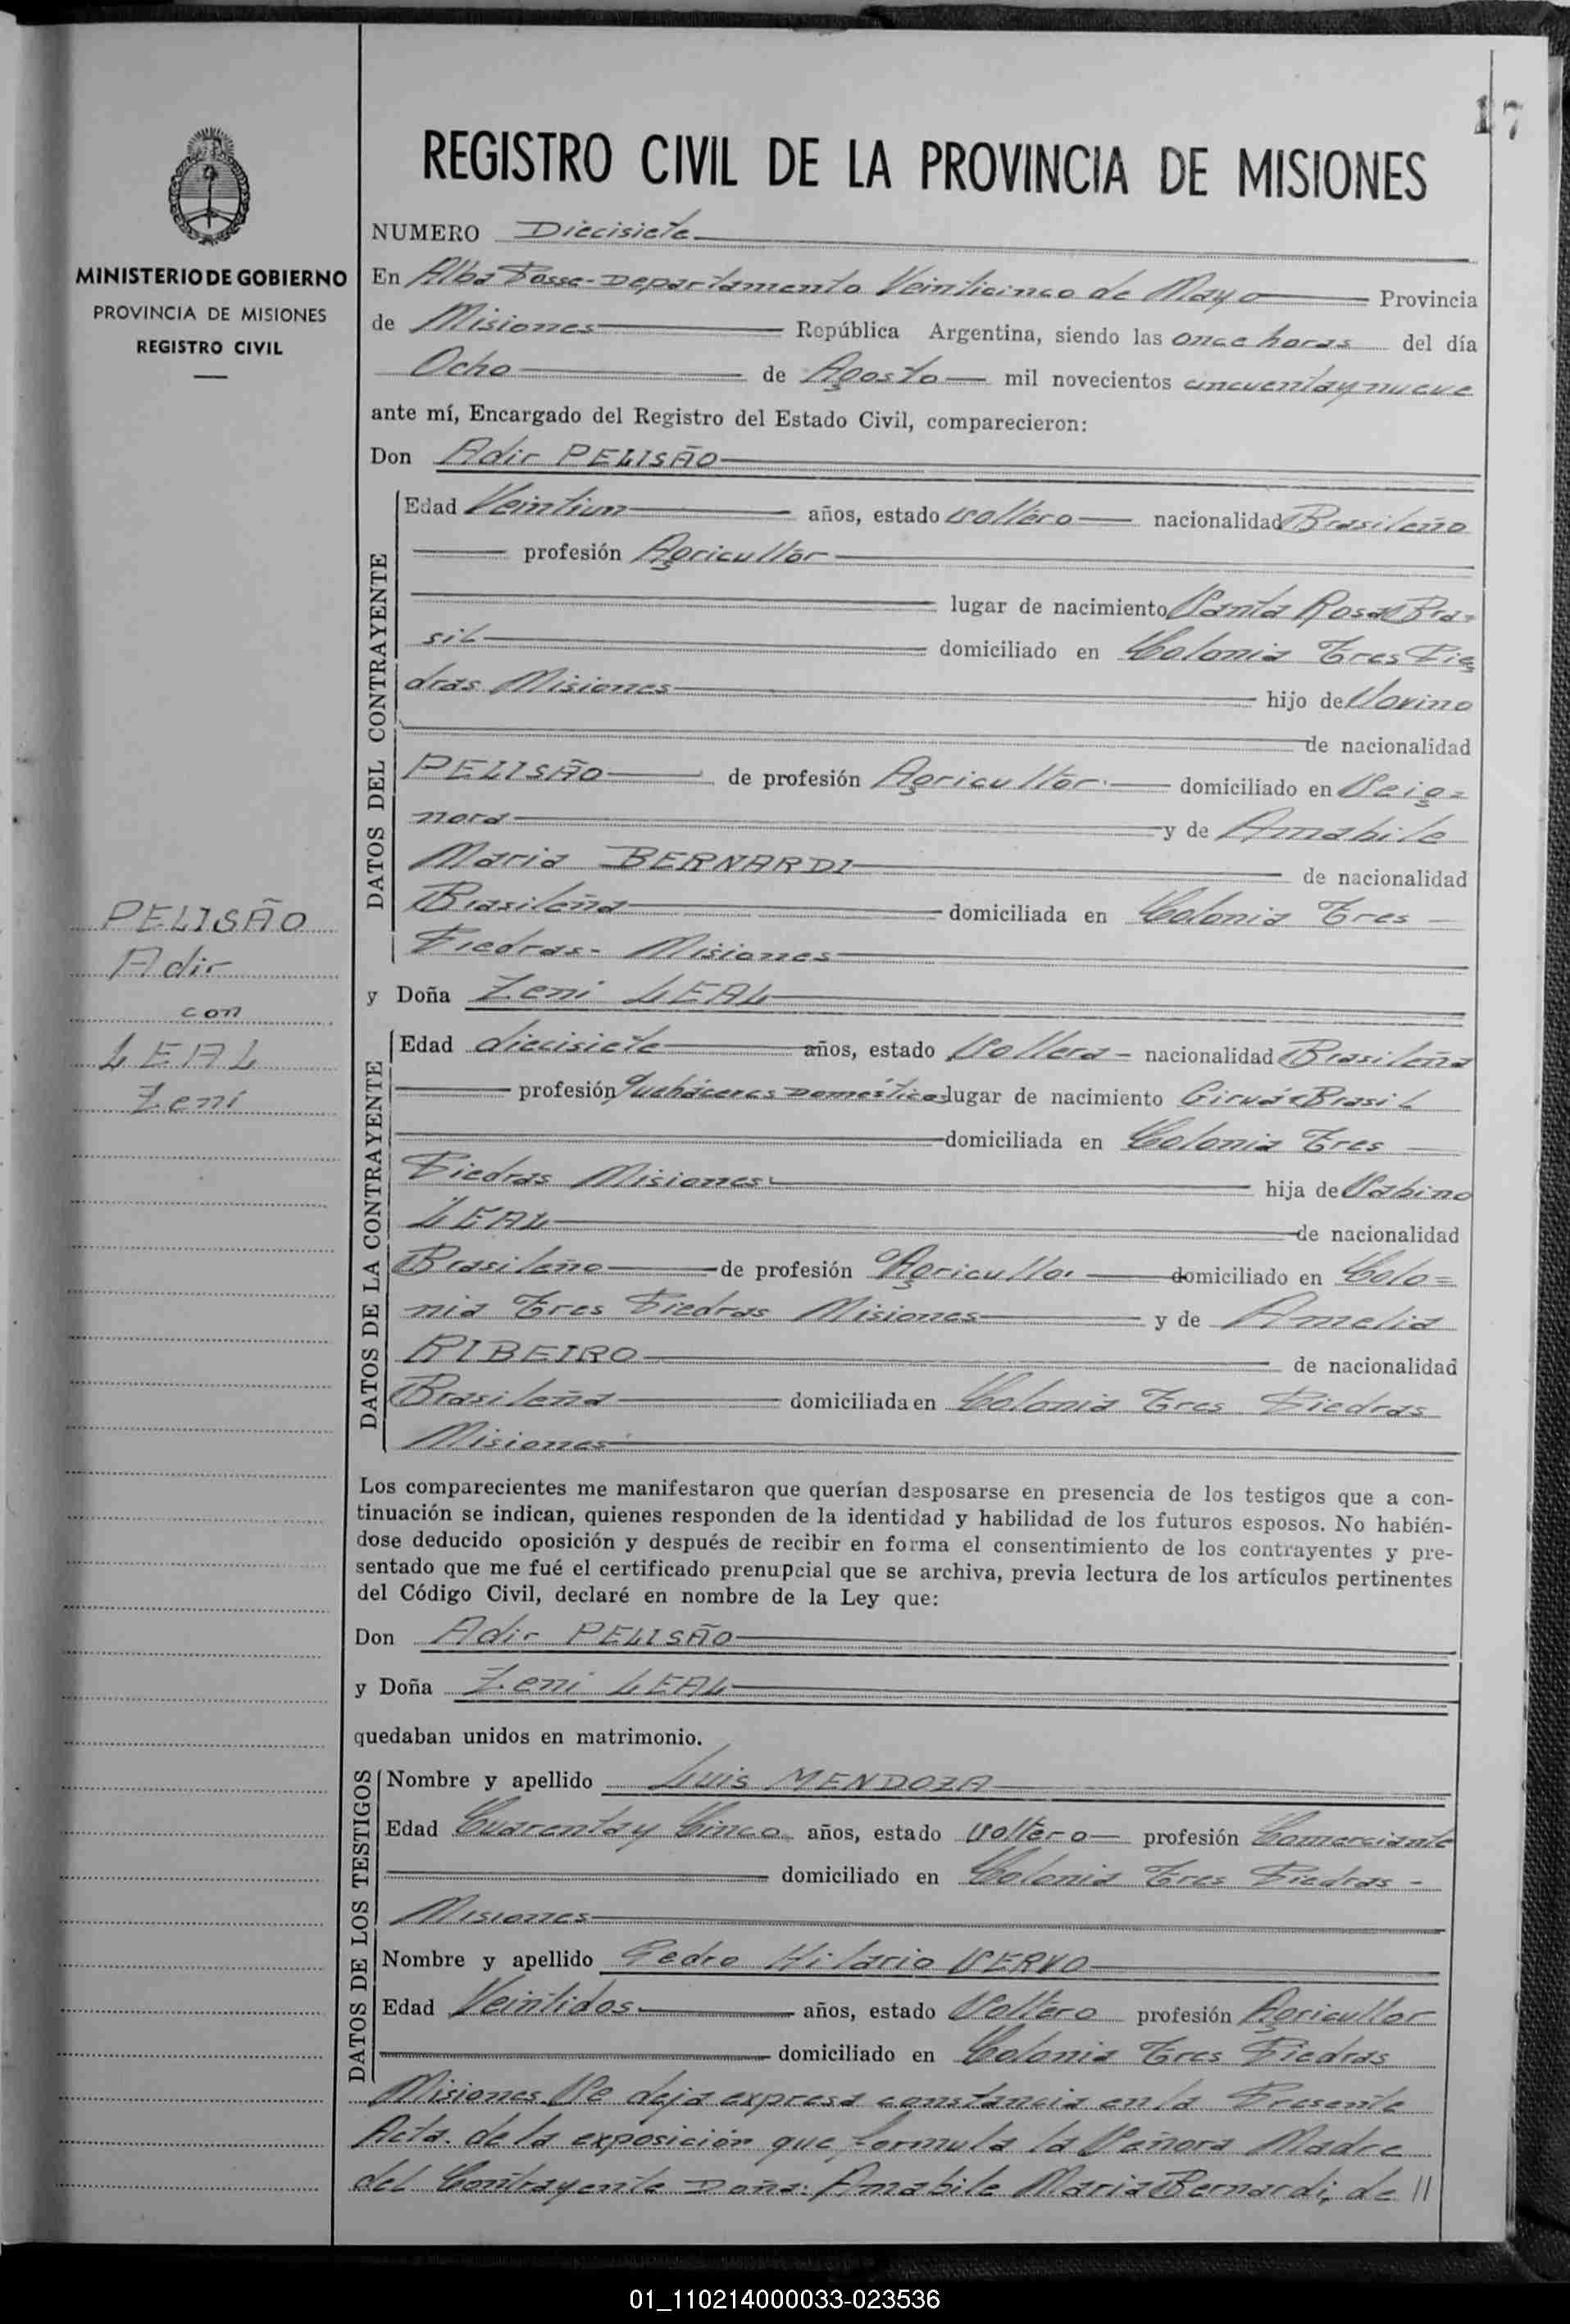 17
REGISTRO CIVIL DE LA PROVINCIA DE MISIONES
MINISTERIO DE GOBIERNO
PROVINCIA DE MISIONES
REGISTRO CIVIL
NUMERO Diecisiete
En Alba Posse - Departamento Veinticinco de Mayo Provincia
de Misiones República Argentina, siendo las once horas del día
Ocho de Agosto mil novecientos cincuenta y nueve
ante mí, Encargado del Registro del Estado Civil, comparecieron:
Don Adir PELISÃO
DATOS DEL CONTRAYENTE
Edad Veintiun años, estado soltero nacionalidad Brasileño
profesión Agricultor
lugar de nacimiento Santa Rosa Bra=
sil domiciliado en Colonia Tres Pie
dras Misiones hijo de Jovino
de nacionalidad
PELISÃO de profesión Agricultor domiciliado en Se ig=
nora y de Amabile
Maria BERNARDI de nacionalidad
Brasileña domiciliada en Colonia Tres
Piedras - Misiones
PELISÃO
Adir
con
LEAL
Zeni
y Doña Zeni LEAL
DATOS DE LA CONTRAYENTE
Edad diecisiete años, estado Soltera - nacionalidad Brasileña
profesión Quehaceres Domésticos lugar de nacimiento Giruá Brasil
domiciliada en Colonia Tres
Piedras Misiones hija de Sabino
LEAL de nacionalidad
Brasileño de profesión Agricultor domiciliado en Colo=
nia Tres Piedras Misiones y de Amelia
RIBEIRO de nacionalidad
Brasileña domiciliada en Colonia Tres Piedras
Misiones
Los comparecientes me manifestaron que querían desposarse en presencia de los testigos que a con-
tinuación se indican, quienes responden de la identidad y habilidad de los futuros esposos. No habién-
dose deducido oposición y después de recibir en forma el consentimiento de los contrayentes y pre-
sentado que me fué el certificado prenupcial que se archiva, previa lectura de los artículos pertinentes
del Código Civil, declaré en nombre de la Ley que:
Don Adir PELISÃO
y Doña Zeni LEAL
quedaban unidos en matrimonio.
DATOS DE LOS TESTIGOS
Nombre y apellido Luis MENDOZA
Edad Cuarenta y Cinco años, estado soltero profesión Comerciante
domiciliado en Colonia Tres Piedras -
Misiones
Nombre y apellido Pedro Hilario SERVO
Edad Veintidos años, estado Soltero profesión Agricultor
domiciliado en Colonia Tres Piedras
Misiones. Se deja expresa constancia en la Presente
Acta. de la exposición que formula la Señora Madre
del Contrayente Doña: Amabile Maria Bernardi; de //
01_110214000033-023536